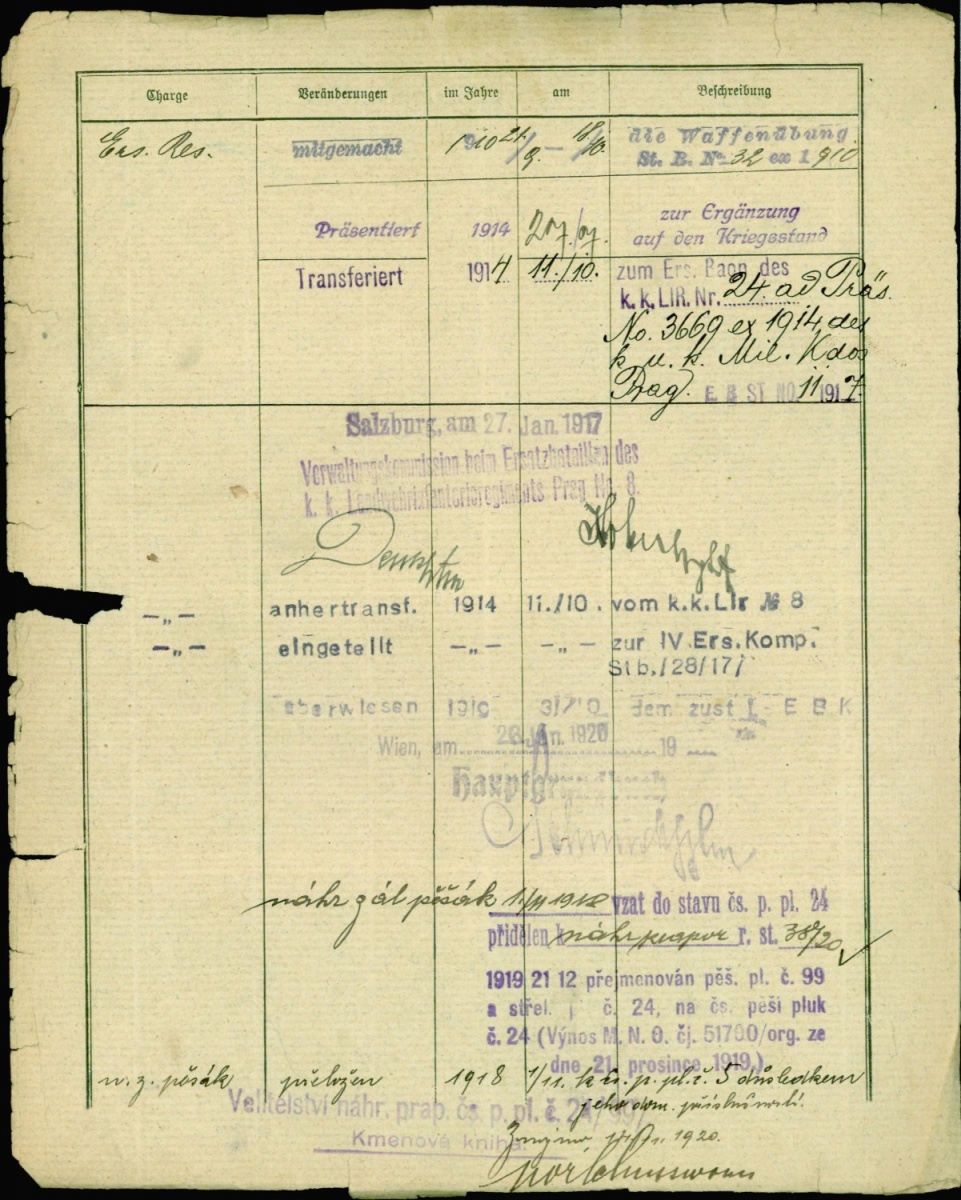 Charge Veränderungen im Jahre am Beschreibung
Ers. Res. mitgemacht 1910 21./9. – 18/10. die Waffenübung
St. B. No 32 ex 1910
Präsentiert 1914 27./7. zur Ergänzung
auf den Kriegsstand
Transferiert 1914 11./10. zum Ers. Baon des
k. k. LIR. Nr. 24. ad Präs.
No. 3669 ex 1914 des
k. u. k. Mil. Kdos
Prag. E B ST NO 11 1917
Salzburg, am 27. Jan. 1917
Verwaltungskommission beim Ersatzbataillon des
k. k. Landwehrinfanterieregiments Prag No. 8.
–„– anhertransf. 1914 11./10. vom k.k. Lir № 8
–„– eingeteilt –„– –„– zur IV. Ers. Komp.
Stb./28/17/
überwiesen dem zust. EBK
Wien, am 1920 19
náhr zál pěšák 1/11 1918 vzat do stavu čs. p. pl. 24
přidělen k náhr prapor r. st. 38/20
1919 21 12 přejmenován pěš. pl. č. 99
a střel. p č. 24, na čs. pěší pluk
č. 24 (Výnos M. N. O. čj. 51700/org. ze
dne 21. prosince 1919.)
n. z. pěšák přeložen 1918 1/11. k čs. p. pl. č. 5 důsledkem
jeho dom. příslušnosti.
Velitelství náhr. prap. čs. p. pl. č. 24/99/
Kmenová kniha.
Znojmo 1920.